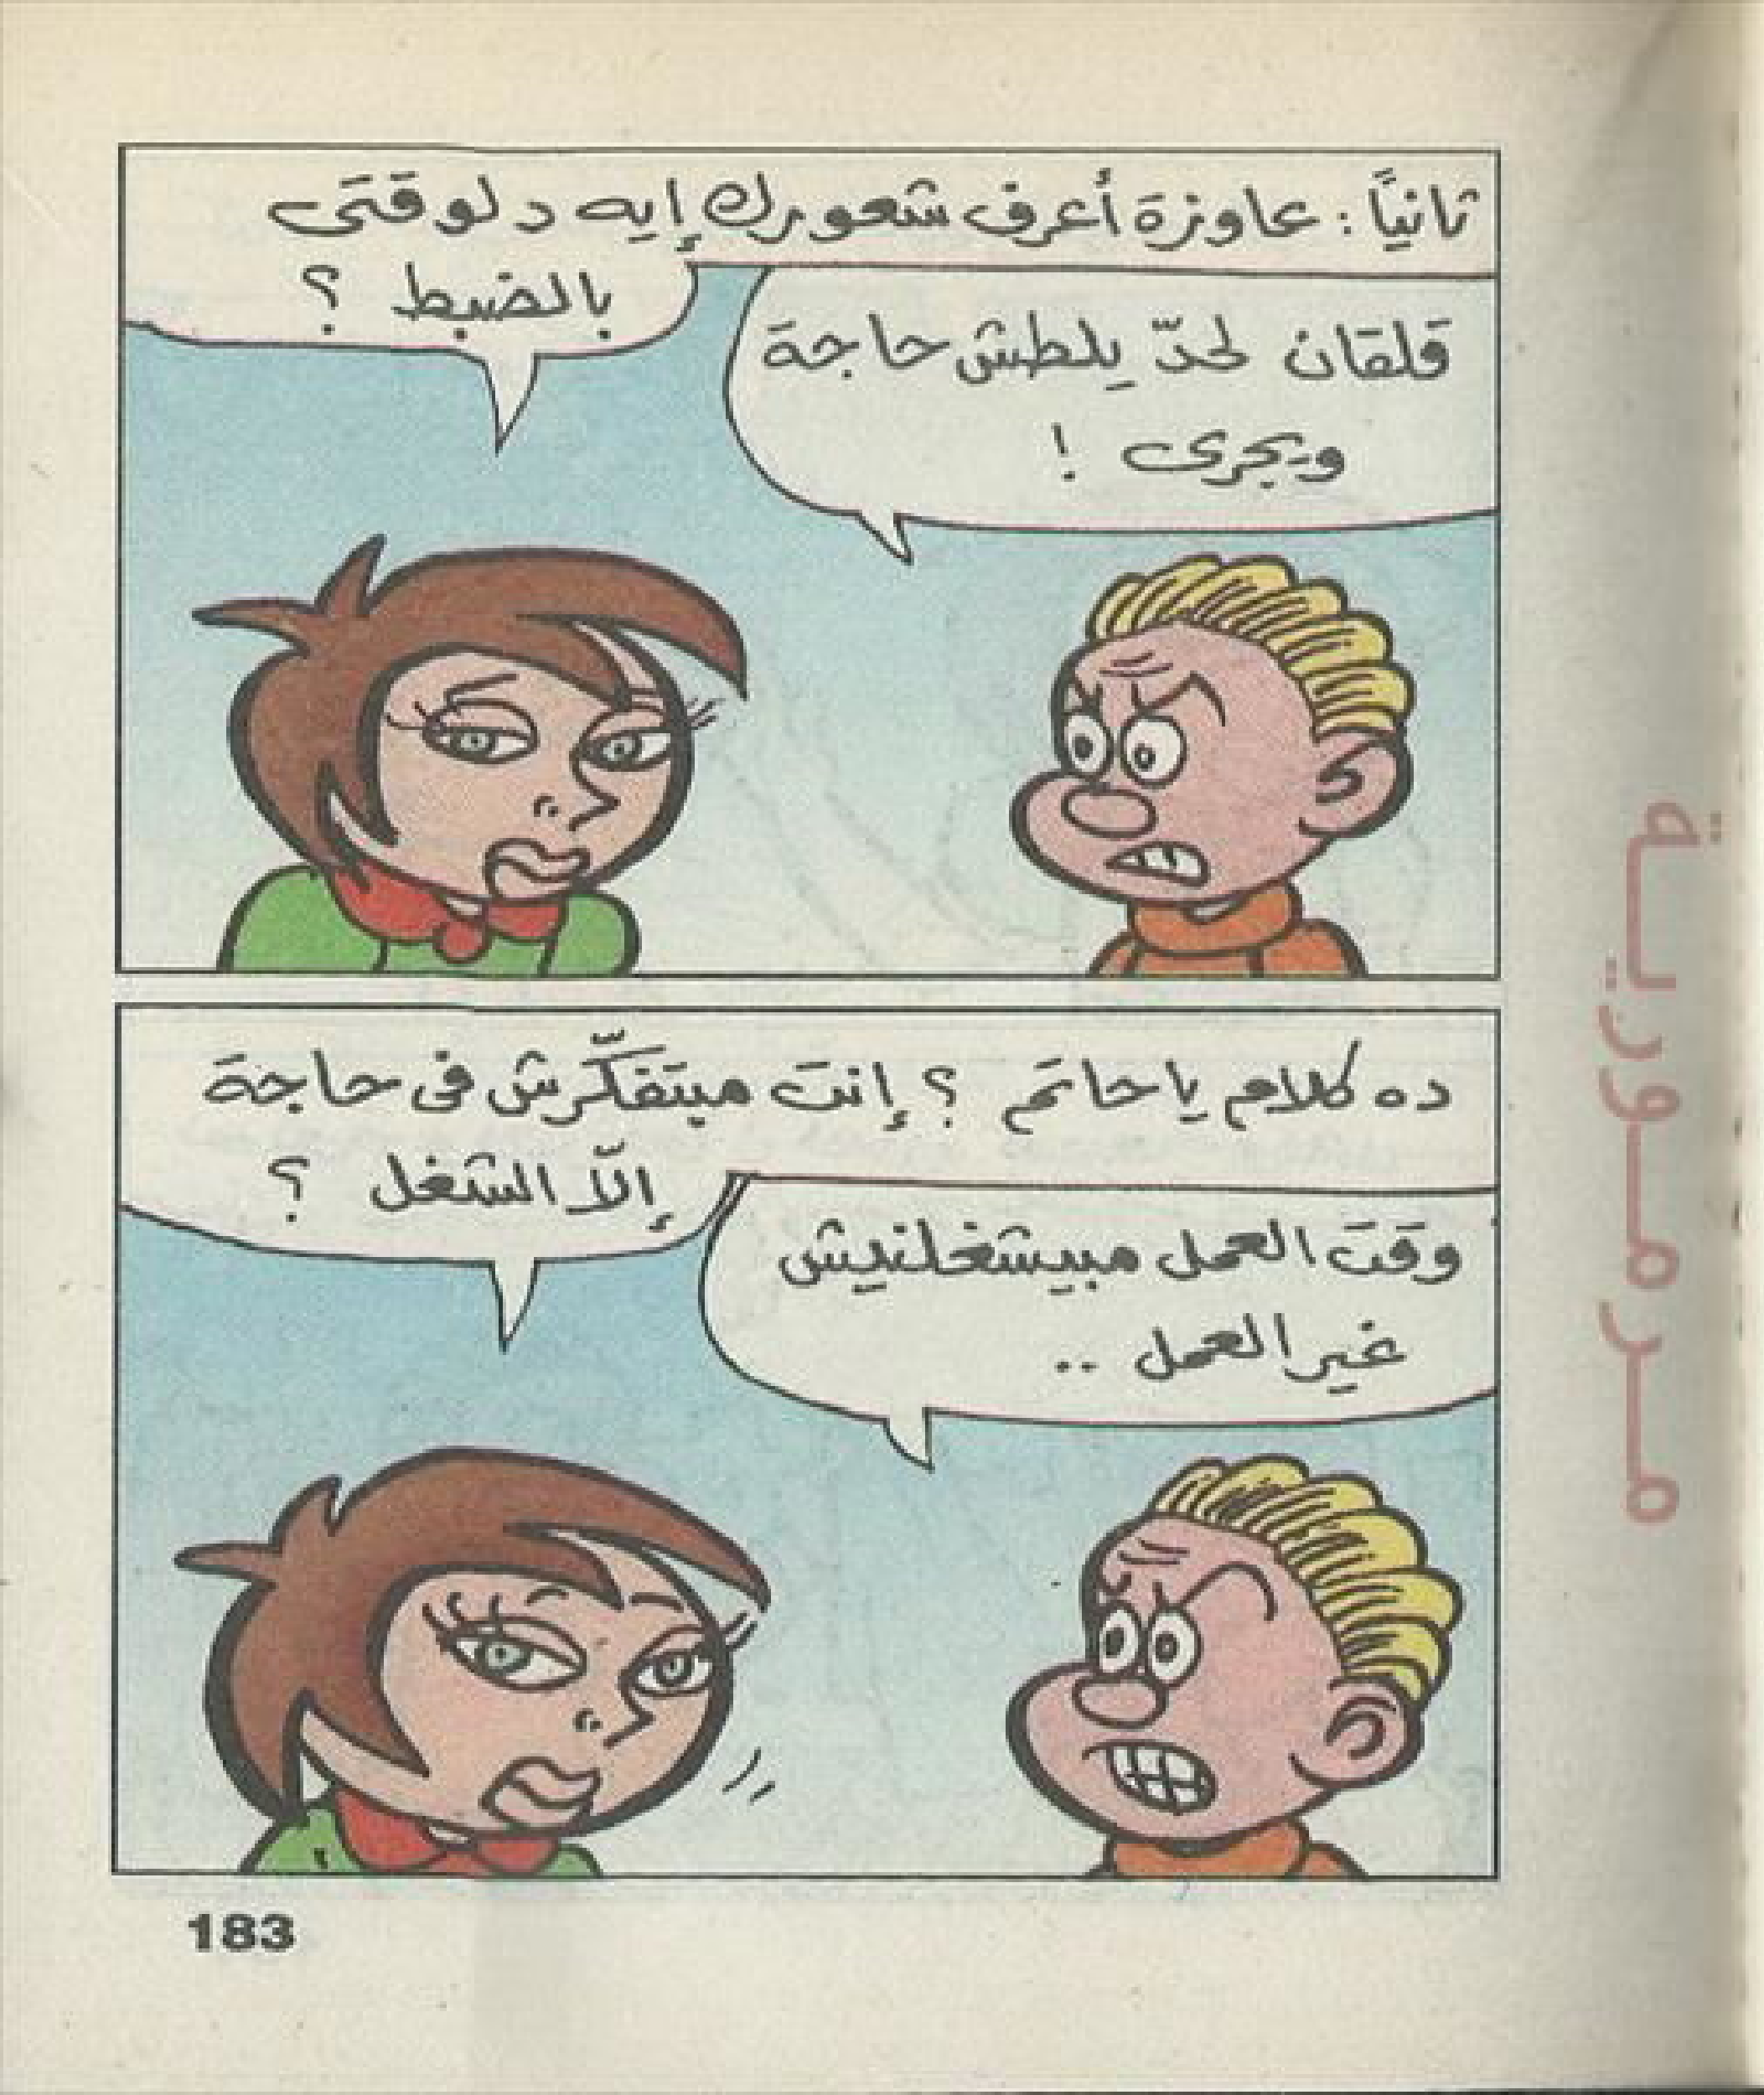 ثانياً : عاوزة أعرف شعورك إيه دلوقتى
بالضبط ؟
قلقان لحدّ يلطش حاجة
ويجرى !
ده كلام ياحاتم ؟ إنت مبتفكّرش فى حاجة
إلاّ الشغل ؟
وقت العمل مبيشغلنيش
غير العمل ..
183
مرمورية